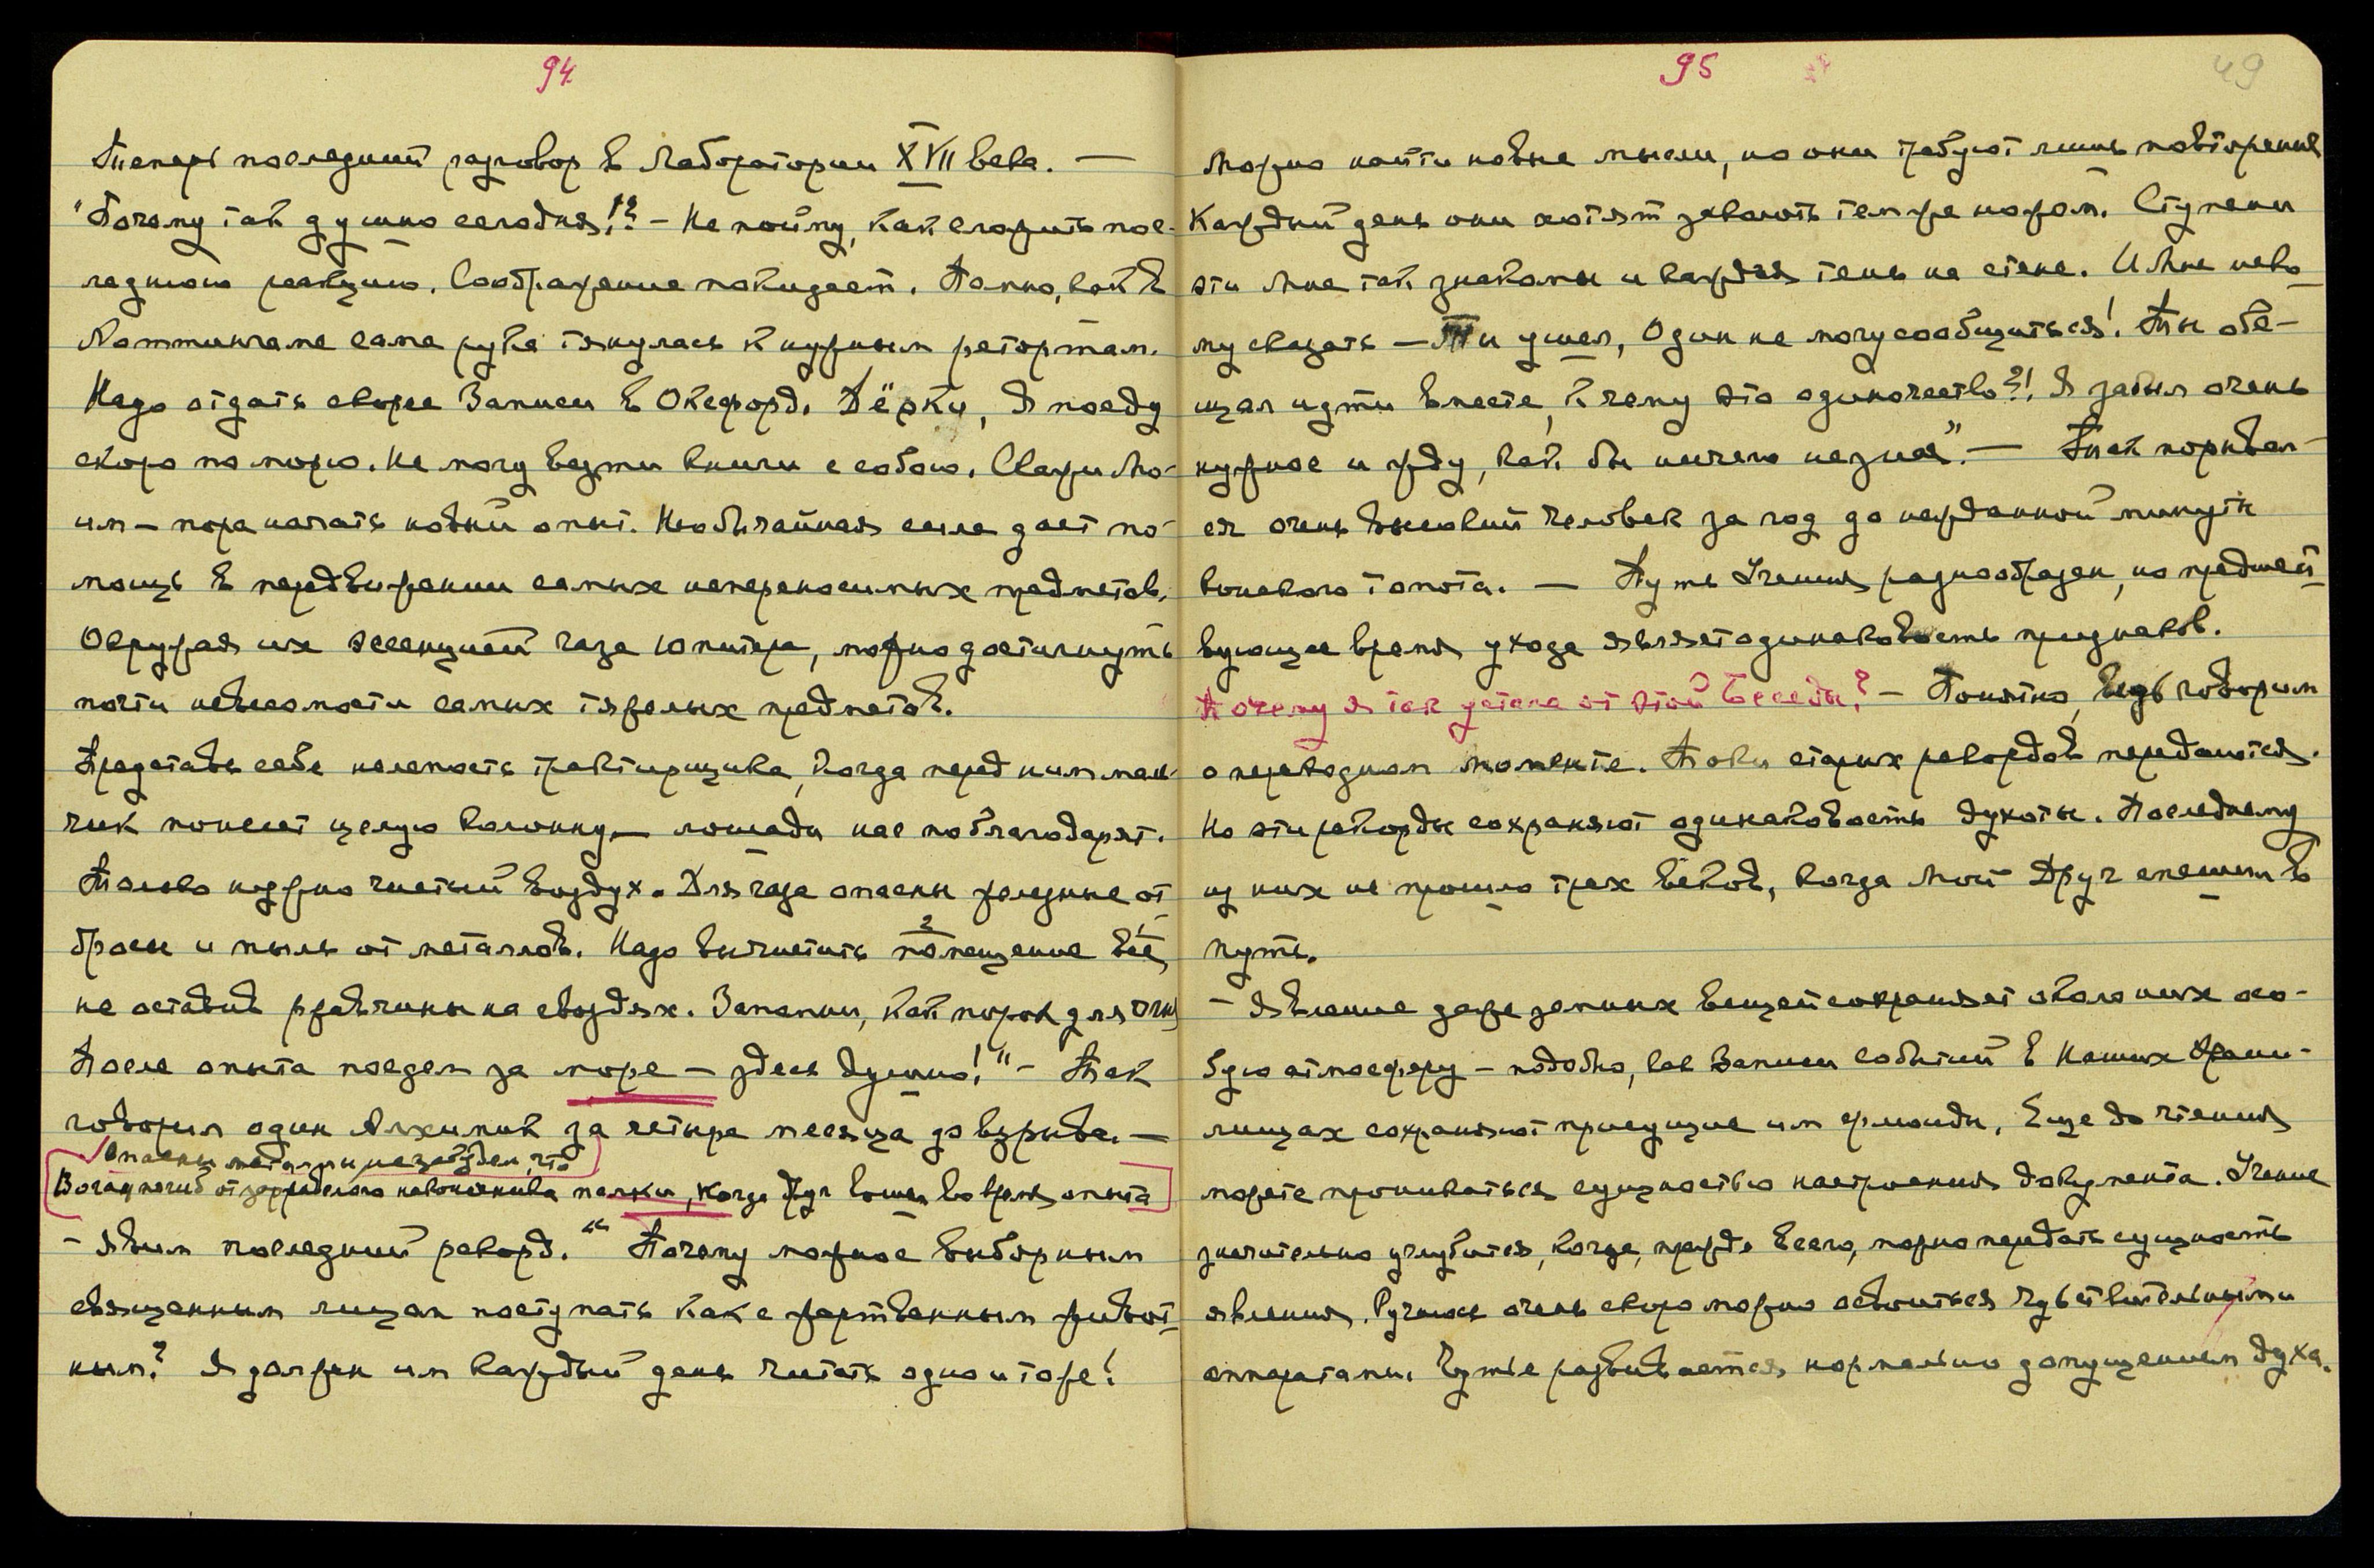 94
Теперь последний разговор в Лаборатории XVII века. —
"Почему так душно сегодня!? – Не пойму, как сложить пос-
леднюю реакцию. Соображение покидает. Помню, как в
Ноттингаме сама рука тянулась к нужным ретортам.
Надо отдать скорее Записи в Оксфорд. Дёрки, Я поеду
скоро по морю. Не могу везти книги с собою. Скажи Мо-
им – пора начать новый опыт. Необычайная сила дает по-
мощь в передвижении самых непереносимых предметов.
Окружая их эссенцией газа Юпитера, можно достигнуть
почти невесомости самых тяжелых предметов.
Представь себе нелепость трактирщика, когда перед ним маль-
чик понесет целую колонну, – лошади нас поблагодарят.
Только нужно чистый воздух. Для газа опасны железные от
бросы и пыль от металлов. Надо вычистить помещение всё,
не оставив ржавчины на гвоздях. Запомни, как порох для огня
После опыта поедем за море – здесь душно!" – Так
говорил один Алхимик за четыре месяца до взрыва. –
Опасны металлы, не забудем, что
Вогак погиб от заржавелого наконечника палки, когда Друг вошел во время опыта
– Явим последний рекорд. "Почему можное выборным
священным лицам поступать как с жертвенным живот
ным? Я должен им каждый день читать одно и то же!
95
49
Можно найти новые мысли, но они требуют лишь повторения
Каждый день они хотят заколоть тем же ножом. Ступени
эти Мне так знакомы и каждая тень на стене. И Мне неко
му сказать – Ты ушел, Один не могу сообщиться! Ты обе-
щал идти вместе, к чему это одиночество?! Я забыл очень
нужное и жду, как бы ничего не зная". – Так порывал-
ся очень высокий человек за год до нежданной минуты
конского топота. – Путь Учения разнообразен, но предшест
вующее время ухода являет одинаковость признаков.
Почему я так устала от этой беседы? – Понятно, ведь говорим
о переходном моменте. Токи старых рекордов передаются.
Но эти рекорды сохраняют одинаковость духоты. Последнему
из них не прошло трех веков, когда Мой Друг спешил в
путь.
– Явление даже земных вещей сохраняет около них осо-
бую атмосферу – подобно, как Записи событий в Наших Храни-
лищах сохраняют присущие им флюиды. Еще до чтения
можете проникаться сущностью настроения документа. Учение
значительно углубится, когда, прежде всего, можно передать сущность
явления. Ручаюсь очень скоро можно освоиться чувствительными
аппаратами. Чутье развивается нормально допущением духа.